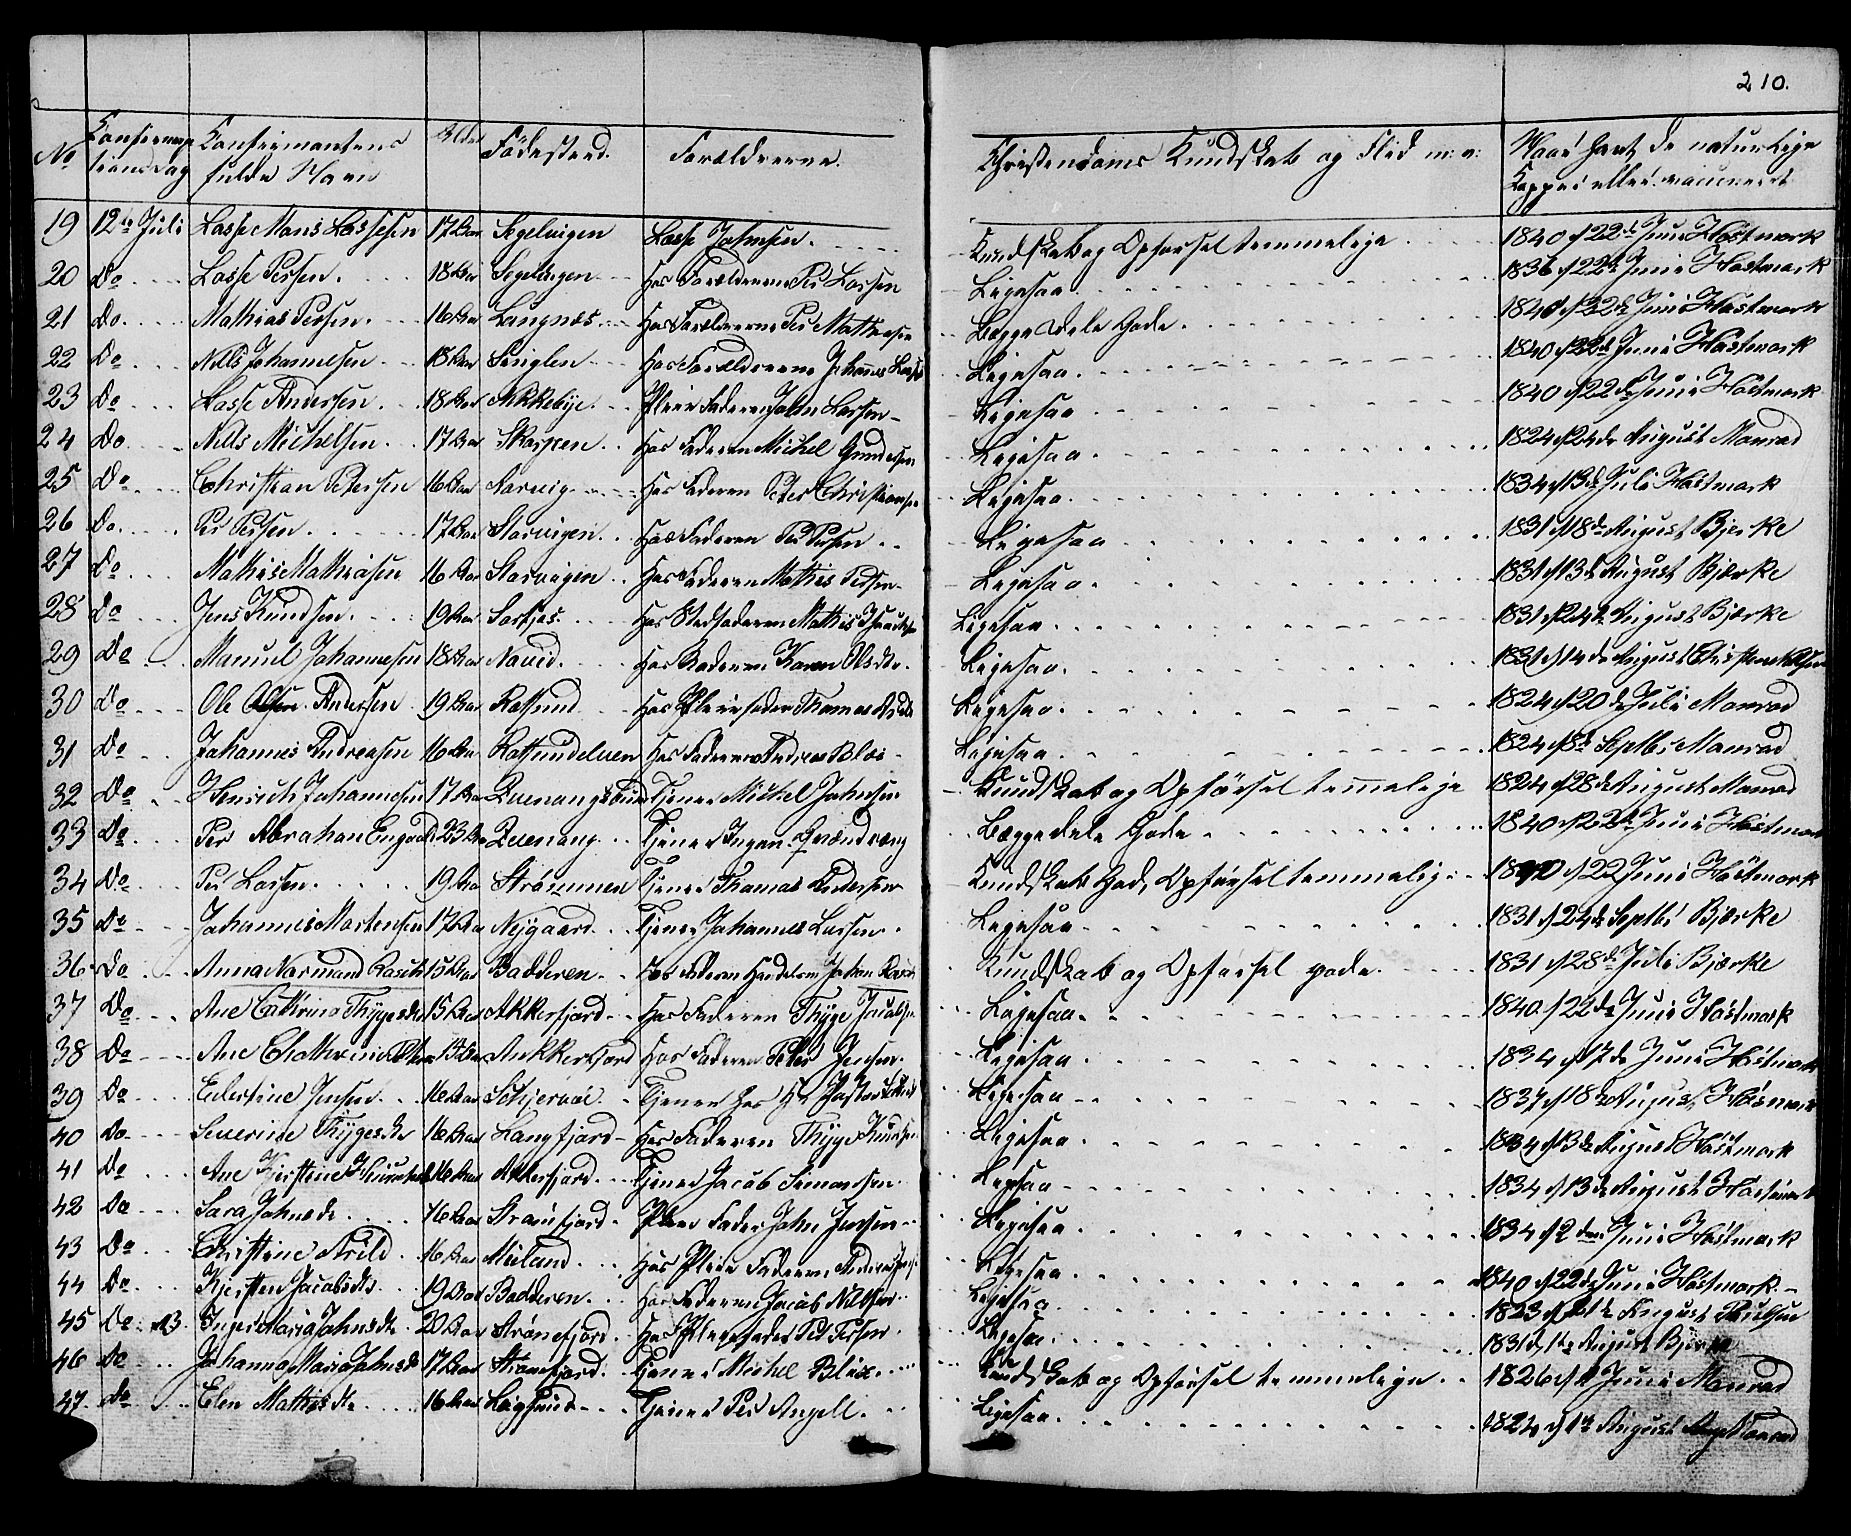 210.
No Confirmations Dag Confirmantens fulde Navn Alder Födested. Forældrerne. Christendoms Kundskab og Flid m: v: Naar havt de naturlige Kopper eller vaccineret
19 12te Juli Lasse Mons Lassesen 17 Aar Segelvigen Lasse Johnsen. Kundskab og Opførsel temmelige 1840 d 22de Juni Høstmark
20 Do Lasse Persen. 18 Aar Segelvigen Hos Forældrerne Per Larsen Ligesaa 1836 d 22de Juni Høstmark
21 Do. Mathias Persen. 16 Aar Langnæs Hos Forældrerne Per Mathiesen Begge Dele Gode. 1840 d 22de Juni Høstmark
22 Do Nills Johannesen 18 Aar Hos Forældrerne Johannes Ligesaa. 1840 d 22de Juni Høstmark
23 Do Lasse Andersen. 18 Aar Nikkebye. Pleie Faderen John Larsen Ligesaa 1840 d 22de Juni Høstmark
24 Do Nills Michelsen 17 Aar Skorpen Hos Faderen Michel Gundersen Ligesaa 1824 d 24de August Monrad
25 Do Christian Petersen 16 Aar Hos Faderen Peter Christiansen Ligesaa. 1834 d 13de Juli Høstmark
26 Do. Per Persen 17 Aar Storvigen Hos Faderen Per Persen Ligesaa 1831 d 18de August Bjerke
27 Do Mathis Mathisen 16 Aar Storvigen Hos Faderen Mathis Persen Ligesaa. 1831 d 13de August Bjerke
28 Do Jens Knudsen. 19 Aar Hos Stedfaderen Mathis Ligesaa 1831 d 24de August Bjerke
29 Do Manuel Johannesen 18 Aar Navid. Hos Moderen Karen Olsdtr. Ligesaa. 1831 d 14de August
30 Do Ole Andersen 19 Aar Rotsund Hos Pleiefader Thomas Ligesaa. 1824 d 20de Juli Monrad
31 Do Johannes Andreasen 16 Aar Rotsundelven Hos Faderen Andreas Ligesaa 1824 d 8de Septbr Monrad
32 Do Henrich Johannesen 17 Aar Tjener Michel Johnsen Kundskab og Opførsel temmelige 1824 d 28de August Monrad
33 Do Per Abrahan 23 Aar Quenang Tjener Qvændvæng Begge dele Gode 1840 d 22de Juni Høstmark
34 Do Per Larsen. 19 Aar Strømmen Tjener Thomas Pedersen Kundskab God, Opførsel temmelig 1840 d 22 Juni Høstmark
35 Do Johannes Mortensen 17 Aar Nygaard Tjener Johannes Larsen Ligesaa 1831 d 24de Septbr Bjerke
36 Do Anna Normand Rasch 15 Aar Badderen Hos Faderen Handelsm. Johan Rasch Kundskab og Opførsel gode. 1831 d 28de Juli Bjerke
37 Do Ane Cathrina Thygesdtr 15 Aar Akkerfjord Hos Faderen Thyge Jacobsen Ligesaa 1840 d 22de Juni Høstmark
38 Do Ane Chathrina 15 Aar Ankkerfjord Hos Faderen Peter Jensen. Ligesaa 1834 d 17de Juni Høstmark
39 Do Edertine Jensen 16 Aar Schjervøe Tjener hos Hr Pastor Ligesaa 1837 d 18de August Høsmark
40 Do Severine Thygesdtr 16 Aar Langfjord Hos Faderen Thyge Knudsen Ligesaa 1834 d 13de August Høstmark
41 Do Ane Kjerstine 16 Aar Akkerfjord Tjener Jacob Simonsen Ligesaa 1834 d 13de August Høstmark
42 Do Sara Johnsdtr 16 Aar Straumfjord Pleie Fader John Jensen Ligesaa 1834 d 2den Juni Høstmark
43 Do Christine Arild 16 Aar Meiland Hos Pleie Faderen Andreas Ligesaa 1840 d 22de Juni Høstmark
44 Do Kjersten Jacobsdtr 19 Aar Badderen Hos Faderen Jacob Nilsen Ligesaa 1823 d 21de August
45 Do Inger Maria Johnsdtr 20 Aar Strømfjord Hos Pleiefader Per Persen Ligesaa 1831 d 1te August Bjerke
46 Do Johanna Maria Johnsdtr 17 Aar Straumfjord Tjener Michel Blix Kundskab og Opførsel temmelige 1826 d Juni Monrad
47 Do Elen Mathisdtr 16 Aar Løgsund Tjener Per Angell. Ligesaa 1824 d 1te August Monrad